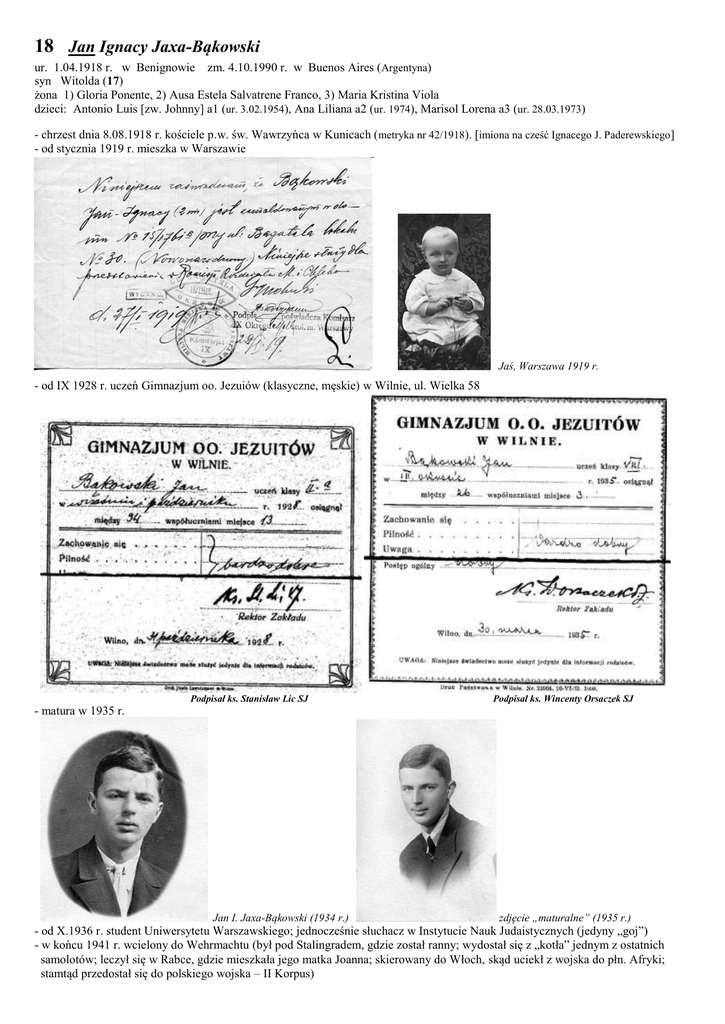 18 Jan Ignacy Jaxa-Bąkowski
ur. 1.04.1918 r. w Benignowie zm. 4.10.1990 r. w Buenos Aires (Argentyna)
syn Witolda (17)
żona 1) Gloria Ponente, 2) Ausa Estela Salvatrene Franco, 3) Maria Kristina Viola
dzieci: Antonio Luis [zw. Johnny] a1 (ur. 3.02.1954), Ana Liliana a2 (ur. 1974), Marisol Lorena a3 (ur. 28.03.1973)
- chrzest dnia 8.08.1918 r. kościele p.w. św. Wawrzyńca w Kunicach (metryka nr 42/1918). [imiona na cześć Ignacego J. Paderewskiego]
- od stycznia 1919 r. mieszka w Warszawie
Niniejszem zaświadczam, że Bąkowski
Jan-Ignacy (2 m) jest zameldowanym w do-
mu № przy ul. Bagatela lokalu
№ 30. (Nowonarodzony) Niniejsze służy dla
przedstawienia
d. 27/I 1919
Podpis poświadcza Komisarz
IX Okręgu m. Warszawy
Jaś, Warszawa 1919 r.
- od IX 1928 r. uczeń Gimnazjum oo. Jezuiów (klasyczne, męskie) w Wilnie, ul. Wielka 58
GIMNAZJUM OO. JEZUITÓW
W WILNIE.
Bąkowski Jan uczeń klasy II-a
w wrześniu i październiku r. 1928 osiągnął
między 34 współuczniami miejsce 13
Zachowanie się
Pilność bardzo dobre
Rektor Zakładu
Wilno, dn. października 1928 r.
UWAGA: Niniejsze świadectwo może służyć jedynie dla informacji rodziców.
GIMNAZJUM O.O. JEZUITÓW
W WILNIE.
Bąkowski Jan uczeń klasy VIII.
w III. okresie r. 1935 osiągnął
między 26 współuczniami miejsce 3
Zachowanie się
Pilność
Uwaga bardzo dobry
Postęp ogólny dobry
Ks. W. Orsaczek SJ.
Rektor Zakładu
Wilno, dn. 30. marca 1935 r.
UWAGA: Niniejsze świadectwo może służyć jedynie dla informacji rodziców.
Podpisał ks. Stanisław Lic SJ
Podpisał ks. Wincenty Orsaczek SJ
- matura w 1935 r.
Jan I. Jaxa-Bąkowski (1934 r.)
zdjęcie „maturalne” (1935 r.)
- od X.1936 r. student Uniwersytetu Warszawskiego; jednocześnie słuchacz w Instytucie Nauk Judaistycznych (jedyny „goj”)
- w końcu 1941 r. wcielony do Wehrmachtu (był pod Stalingradem, gdzie został ranny; wydostał się z „kotła” jednym z ostatnich
samolotów; leczył się w Rabce, gdzie mieszkała jego matka Joanna; skierowany do Włoch, skąd uciekł z wojska do płn. Afryki;
stamtąd przedostał się do polskiego wojska – II Korpus)